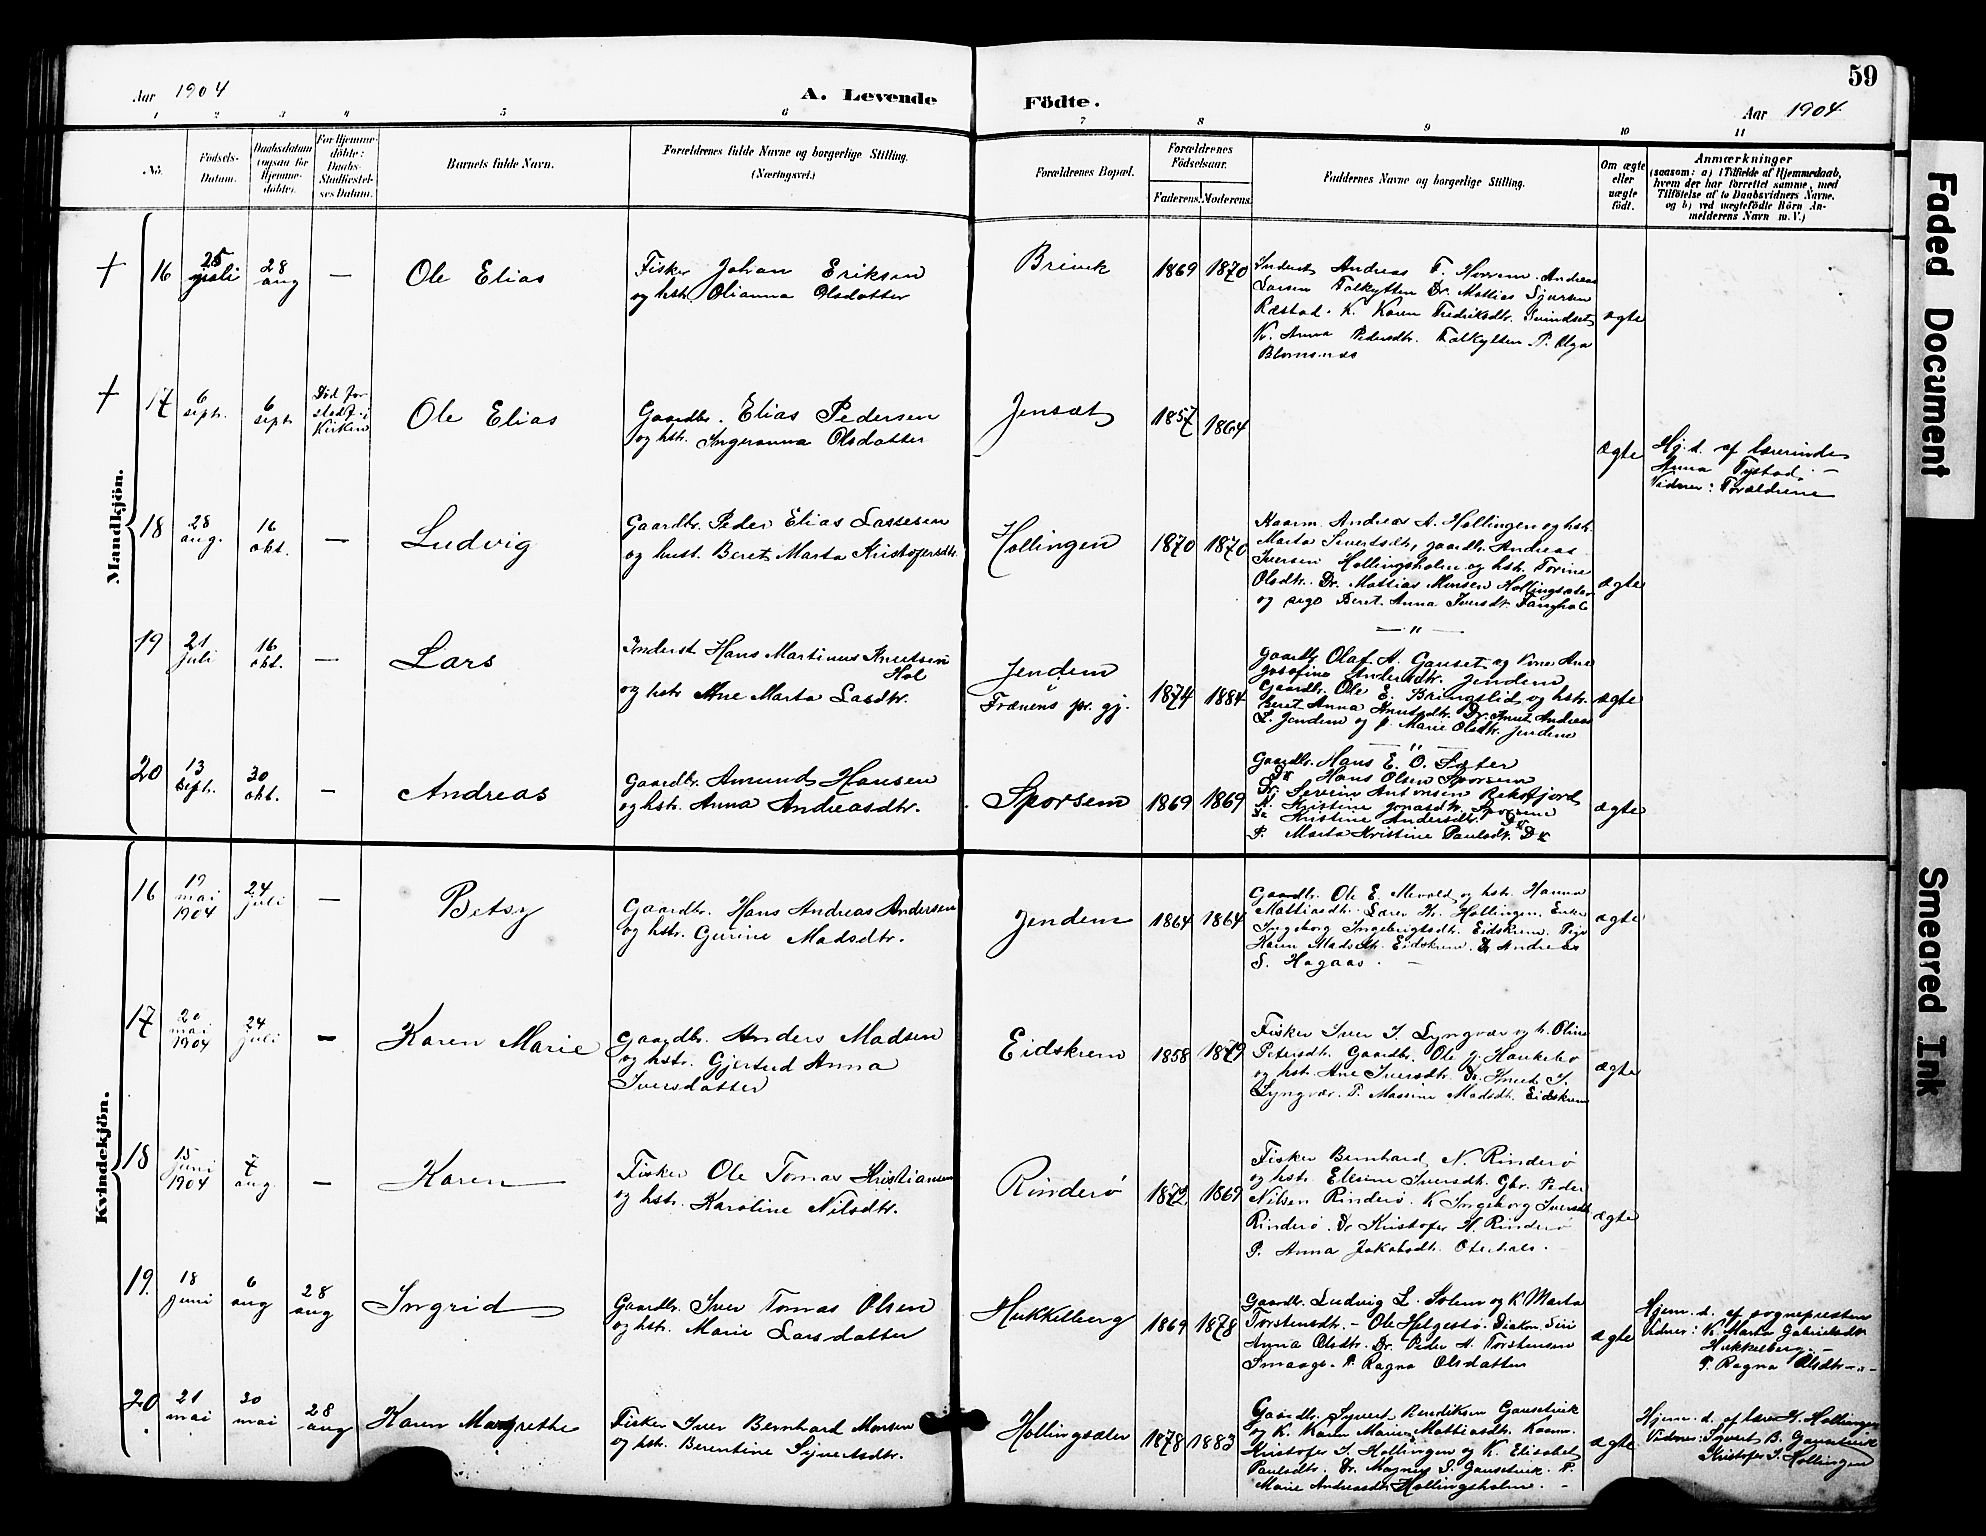 59
Aar 1904
A. Levende
Födte.
Aar 1904
1 2 3 4 5 6 7 8 9 10 11
No.
Födsels-
Datum.
Daabsdatum
(ogsaa for
Hjemme-
döbte).
For Hjemme-
döbte:
Daabs-
Stadfæstel-
ses Datum.
Barnets fulde Navn.
Forældrenes fulde Navne og borgerlige Stilling.
(Næringsvei.)
Forældrenes Bopæl.
Forældrenes
Födselsaar.
Faderens. Moderens.
Faddernes Navne og borgerlige Stilling.
Om ægte
eller
uægte
födt.
Anmærkninger
(saasom: a) i Tilfælde af Hjemmedaab,
hvem der har forrettet samme, med
Tilföielse af to Daabsvidners Navne.
og b) ved uægtefödte Börn An-
melderens Navn m. V.)
Mandkjön.
+ 16
25
juli
28
aug
—
Ole Elias
Fisker Johan Eriksen
og hstr. Olianna Olsdatter
Brivik
1869 1870
Inderst Andreas T. Andreas
Larsen Talkytten Dr. Mattias Sjursen
Ræstad. K. Karen Fredriksdtr. Svindset
K. Anna Pedersdtr. Talkytten P. Olga
Blomsnes
ægte
+ 17
6
sept.
6
sept.
Død før
stadf. i
Kirken
Ole Elias
Gaardbr. Elias Pedersen
og hstr. Ingeranna Olsdatter
Jenset
1857 1864
ægte
Hj. d. af lærerinde
Anna Tystad. —
Vidner: Forældrene
18
28
aug.
16
okt.
—
Ludvig
Gaardbr. Peder Elias Lassesen
og hust. Beret Marta Kristofersdtr.
Hollingen
1870 1870
Kaarm. Andreas A. Hollingen og hstr.
Marta Sivertsdtr, gaardbr. Andreas
Iversen Hollingsholm og hstr. Torine
Olsdtr. Dr. Mattias Monsen Hollingsæter
og pige Beret Anna Iversdtr.
ægte
— " —
19
21
juli
16
okt.
—
Lars
Inderst Hans Martinus Knutsen
Hol
og hstr. Ane Marta Lasdtr.
Jendem
Frænens pr. gj.
1874 1884
Gaardbr Olaf A. Gauset og Kone Ane
Josefine Andersdtr. Jendem
Gaardbr. Ole E. Bringslid og hstr.
Beret Anna Knutsdtr. Dr. Knut Andreas
L. Jendem og p. Marie Olsdtr. Jendem
ægte
— " —
20
13
Sept.
30
okt.
—
Andreas
Gaardbr. Amund Hansen
og hstr. Anna Andreasdtr.
Sporsem
1869 1869
Gaardbr. Hans E. O. Sæter
Hans Olsen Sporsem
Dr. Severin Antonsen Rekofjord
K. Kristine Jonasdtr. Sporsem
Kristine Andersdtr.
P. Marta Kristine Paulsdtr.
ægte
Kvindekjön.
16
19
mai
1904
24
juli
—
Betsy
Gaardbr. Hans Andreas Andersen
og hstr. Gurine Madsdtr.
Jendem
1864 1864
Gaardbr. Ole E. Mevold og hstr. Hanna
Mattiasdtr. Lærer Kr. Hollingen. Enke
Ingeborg Ingebrigtsdtr. Eidskrem. Pige
Karen Madsdtr. Eidskrem. Dr. Andreas
S. Hagaas. —
ægte
17
20
mai
1904
24
juli
—
Karen Marie
Gaardbr. Anders Madsen
og hstr. Gjertrud Anna
Iversdatter
Eidskrem
1858 1879
Fisker Iver I. Lyngvær og h. Oline
Petersdtr. Gaardbr. Ole J. Haukebø
og hstr. Ane Iversdtr. Dr. Knut I.
Lyngvær. P. Massine Madsdtr. Eidskrem
ægte
18
15
juni
1904
7
aug.
—
Karen
Fisker Ole Tomas Kristiansen
og hstr. Karoline Nilsdtr.
Rinderø
1872 1869
Fisker Bernhard N. Rinderø
og hstr. Elesine Iversdtr. Gbr. Peder
Nilsen Rinderø. K Ingeborg Iversdtr.
Rinderø. Dr. Kristofer H. Rinderø
P. Anna Jakobsdtr. Oterhals. —
ægte
19.
18
juni
6
aug
28
aug
Ingrid
Gaardbr. Iver Tomas Olsen
og hstr. Marie Larsdatter
Hukkelberg
1869 1878
Gaardbr. Ludvig L. Solem og K. Marta
Torstensdtr. — Ole Helgestø. Diakon. Siri
Anna Olsdtr. Dr. Peder A. Torstensen
Smaage. P. Ragna Olsdatter
ægte
Hjem. d. af sognepresten
Vidner: K. Marta Gabrielsdtr
Hukkelberg. —
P. Ragna Olsdtr —"—
20
21
mai
30
mai
28
aug
Karen Margrethe
Fisker Iver Bernhard Monsen
og hstr. Berentine Syvertsdtr.
Hollingsæter
1878 1883
Gaardbr. Syvert Bendiksen Gausetvik
og K. Karen Marie Mattiasdtr. Kaarm.
Kristofer I. Hollingen og K. Elisabet
Paulsdtr. Dr. Magnus S. Gausetvik. P.
Marie Andreasdtr. Hollingsholm. —
ægte
Hjem. d. af lærer K. Hollingen
Vidner: Syvert B. Gausetvik
Kristofer I. Hollingen
Faded Document
Smeared Ink